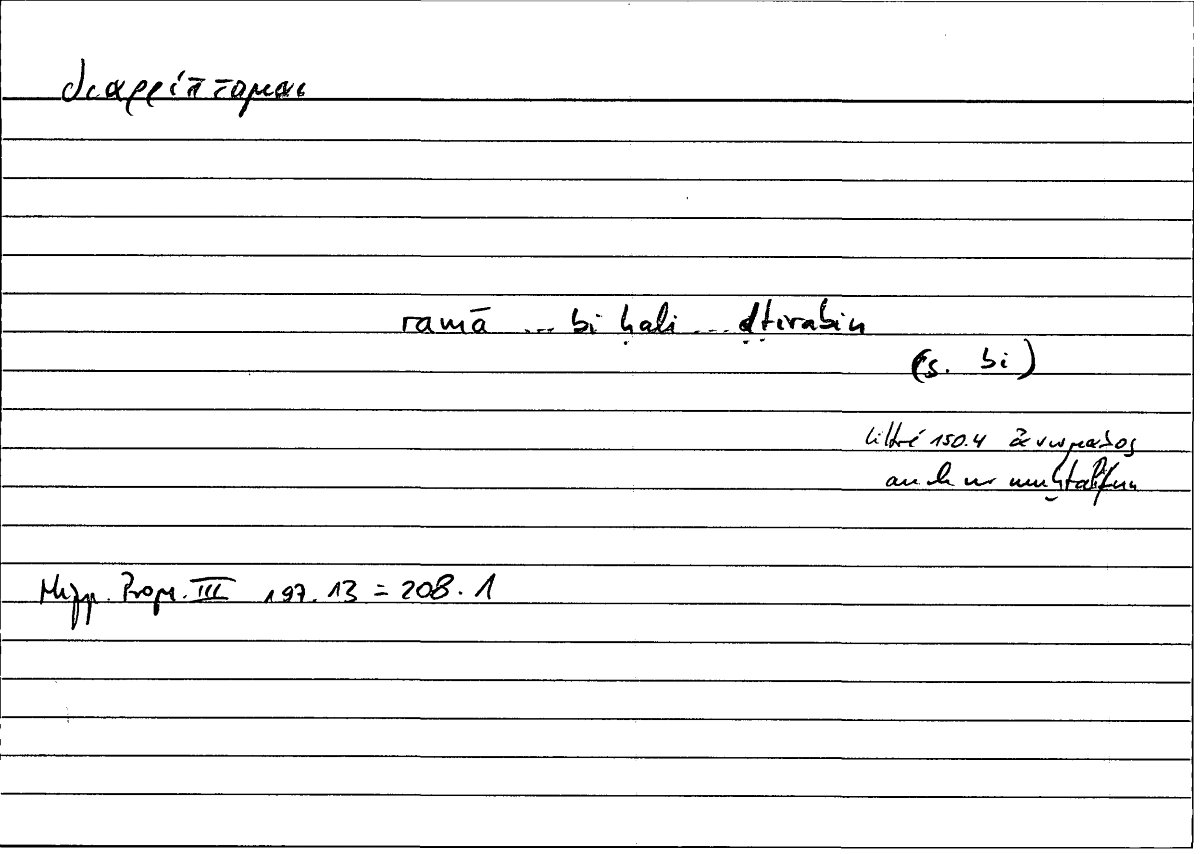 διαρρίπταμαι
ramā ... bi ḥali ... ḍṭirabin
(s. bi)
Littré 150.4 ἀνωμαλος
auch nur muḫtalifun
Hipp. Progn. III 197.13 = 208.1